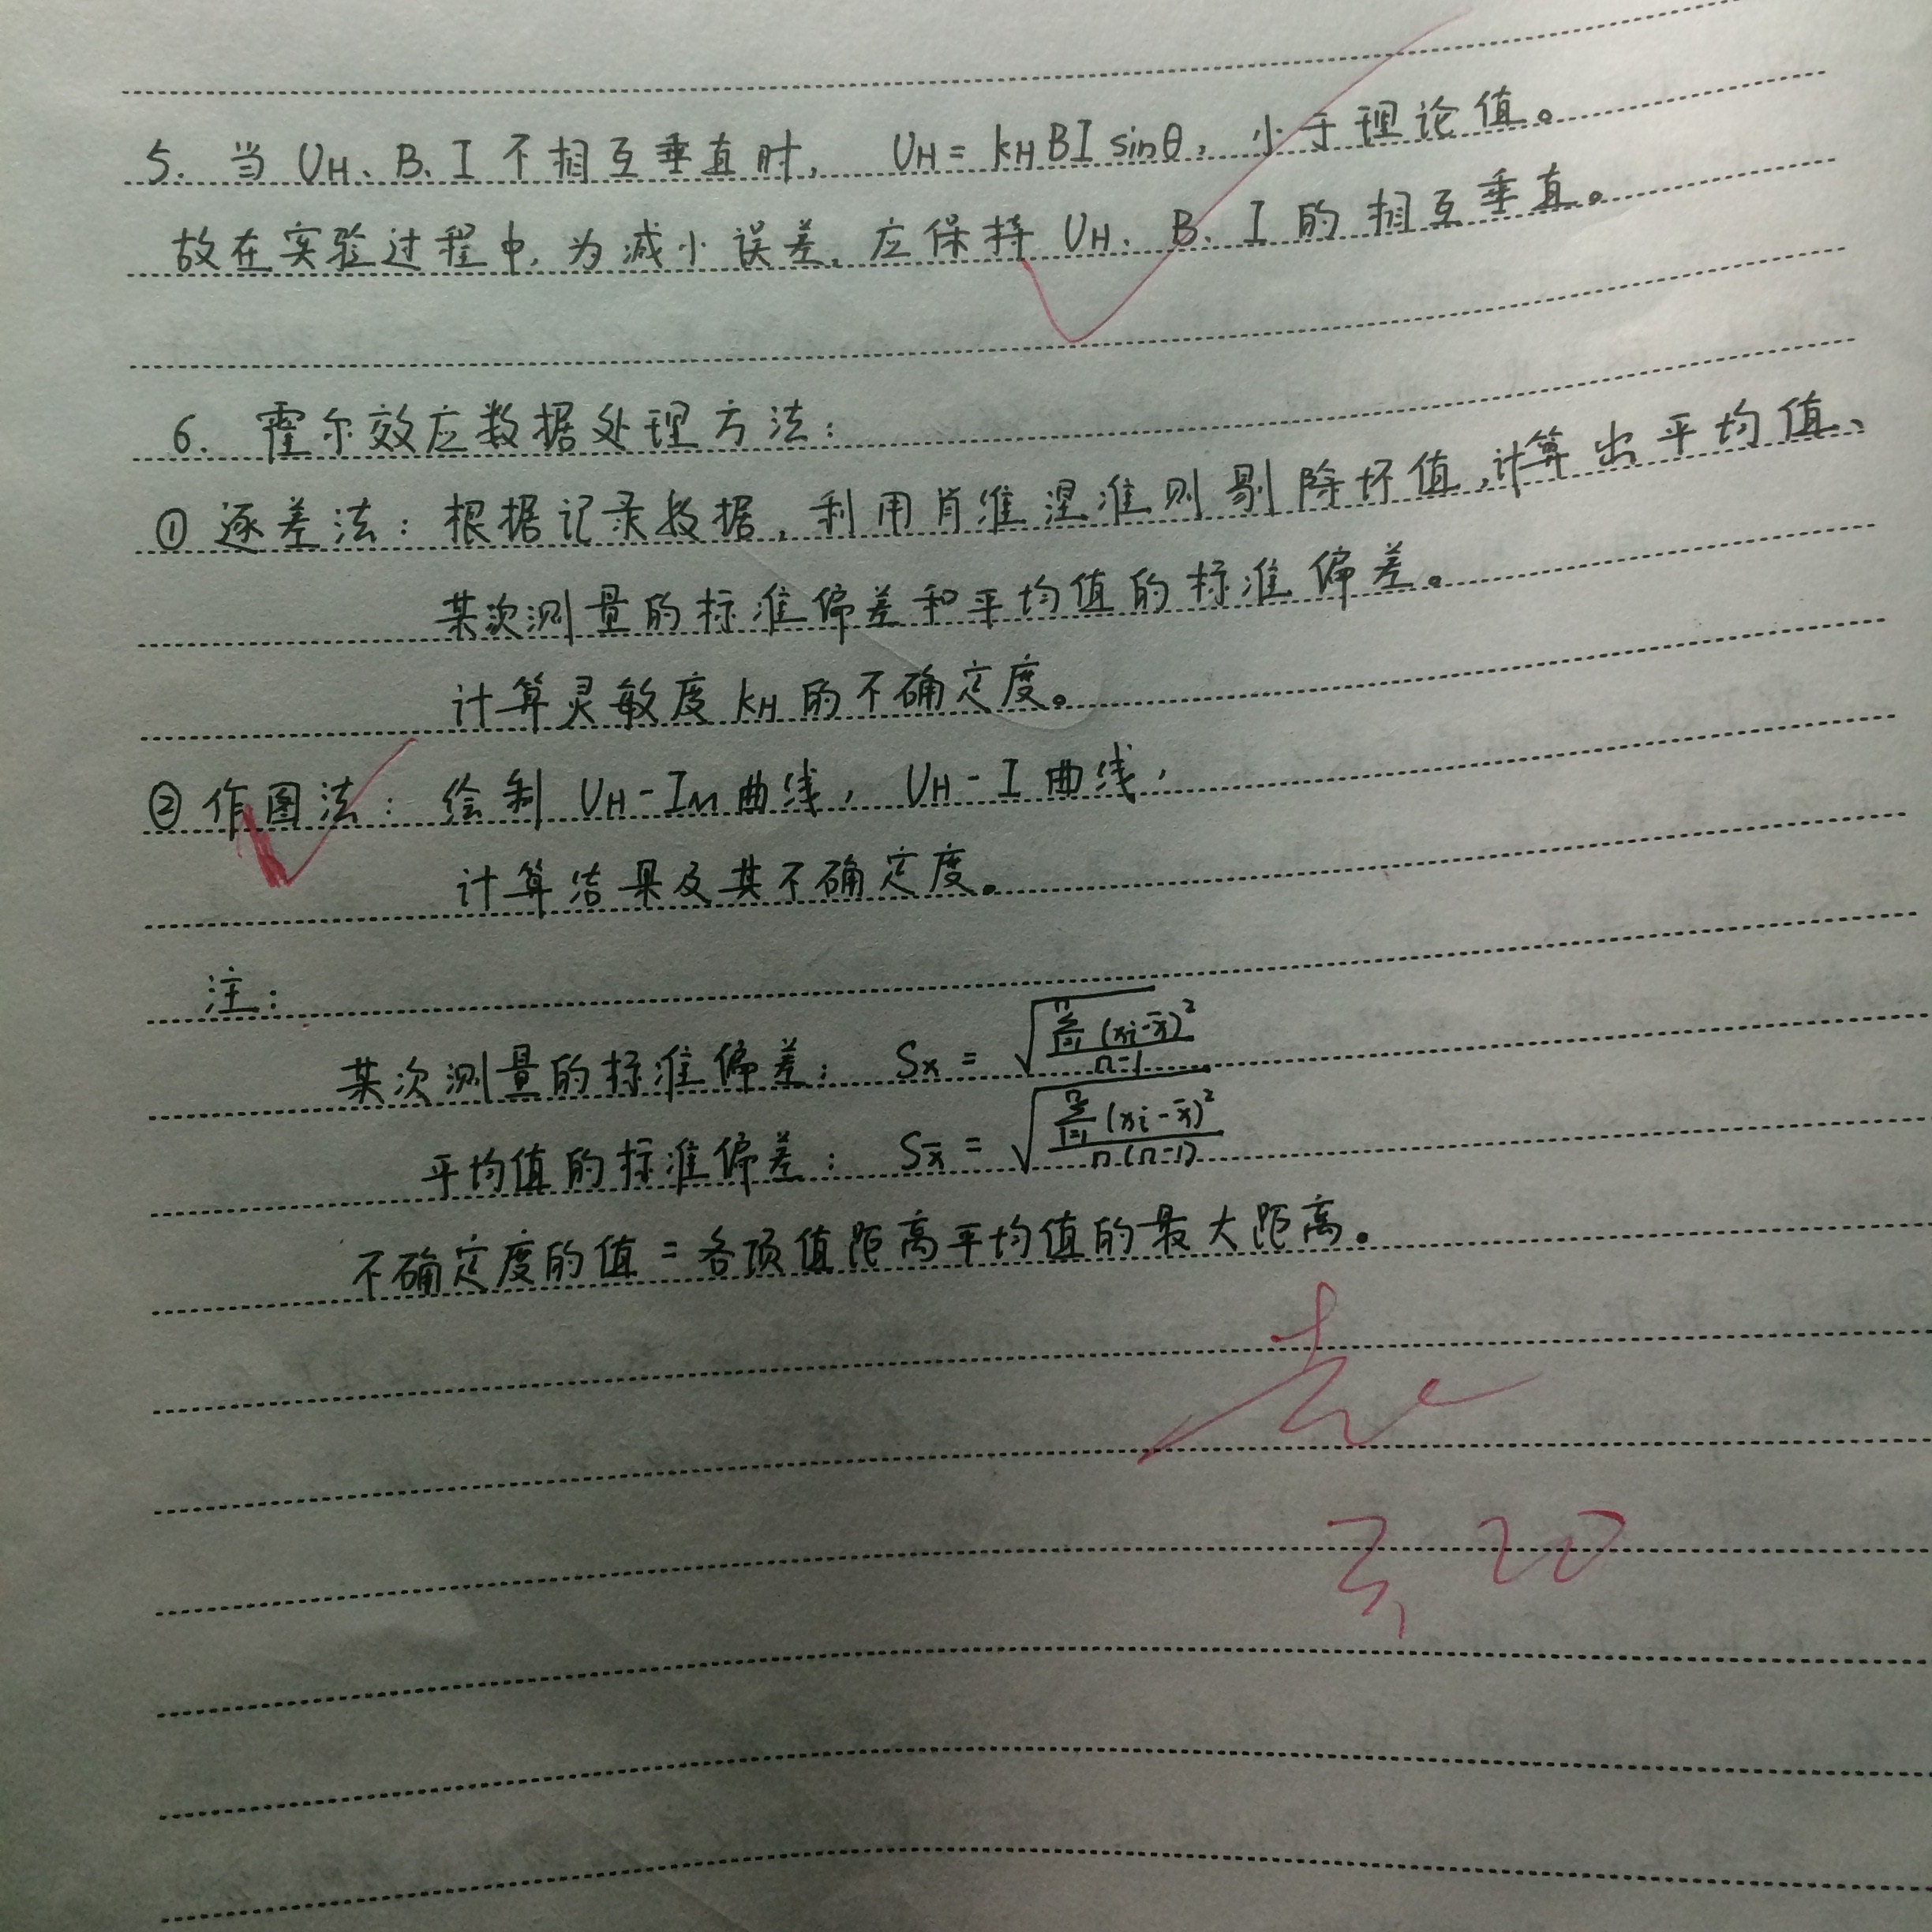 5. 当 UH、B、I 不相互垂直时, UH = kHBI sinθ, 小于理论值。
故在实验过程中,为减小误差,应保持 UH、B、I 的相互垂直。
6. 霍尔效应数据处理方法:
① 逐差法: 根据记录数据,利用肖维涅准则剔除坏值,计算出平均值、
某次测量的标准偏差和平均值的标准偏差。
计算灵敏度 kH 的不确定度。
② 作图法: 绘制 UH-IM曲线, UH-I曲线,
计算结果及其不确定度。
注:
某次测量的标准偏差: Sx = √(∑ⁿᵢ₌₁(xi-x̄)²/(n-1))
平均值的标准偏差: Sx̄ = √(∑ⁿᵢ₌₁(xi-x̄)²/(n(n-1)))
不确定度的值 = 各项值距离平均值的最大距离。